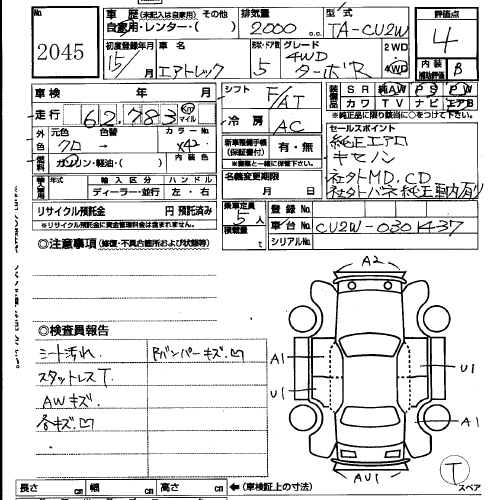 No. 2045
車歴 (未記入は自家用) その他 自家用・レンター・( )
排気量 2000 c.c.
型式 TA-CU2W
評価点 4
初度登録年月 15/ 月
車名 エアトレック
形状・ドア数 5
グレード 4WD ターボR
2WD 4WD
内装補助評価 B
車検 年 月
シフト F/AT
装備品 SR 純AW PS PW
カワ TV ナビ エアB
※純正品に限り該当に○をつけて下さい。
走行 62,783 Km マイル
冷房 AC
セールスポイント
純正エアロ
キセノン
社外MD.CD
社外バネ純正車内有り
外色 元色 クロ 色替 → カラーNo X42
内装色
燃料 ガソリン・軽油・( )
新車整備手帳(保証書付) 有・無
※書類と一緒に保管して下さい。
年式 輸入区分 ハンドル
ディーラー・並行 左・右
名義変更期限 月 日
リサイクル預託金 円 預託済み
※リサイクル預託金に資金管理料金は含まれません。
乗車定員 5人
積載量 t
登録No.
車台No. CU2W-0301437
シリアルNo.
◎注意事項 (修復・不具合箇所および状態等)
◎検査員報告
シート汚れ Rバンパーキズ.凹
スタットレスT.
AWキズ
各キズ.凹
A2
A1
U1
U1
A1
AU1
T スペア
長さ cm 幅 cm 高さ cm ←(車検証上の寸法)